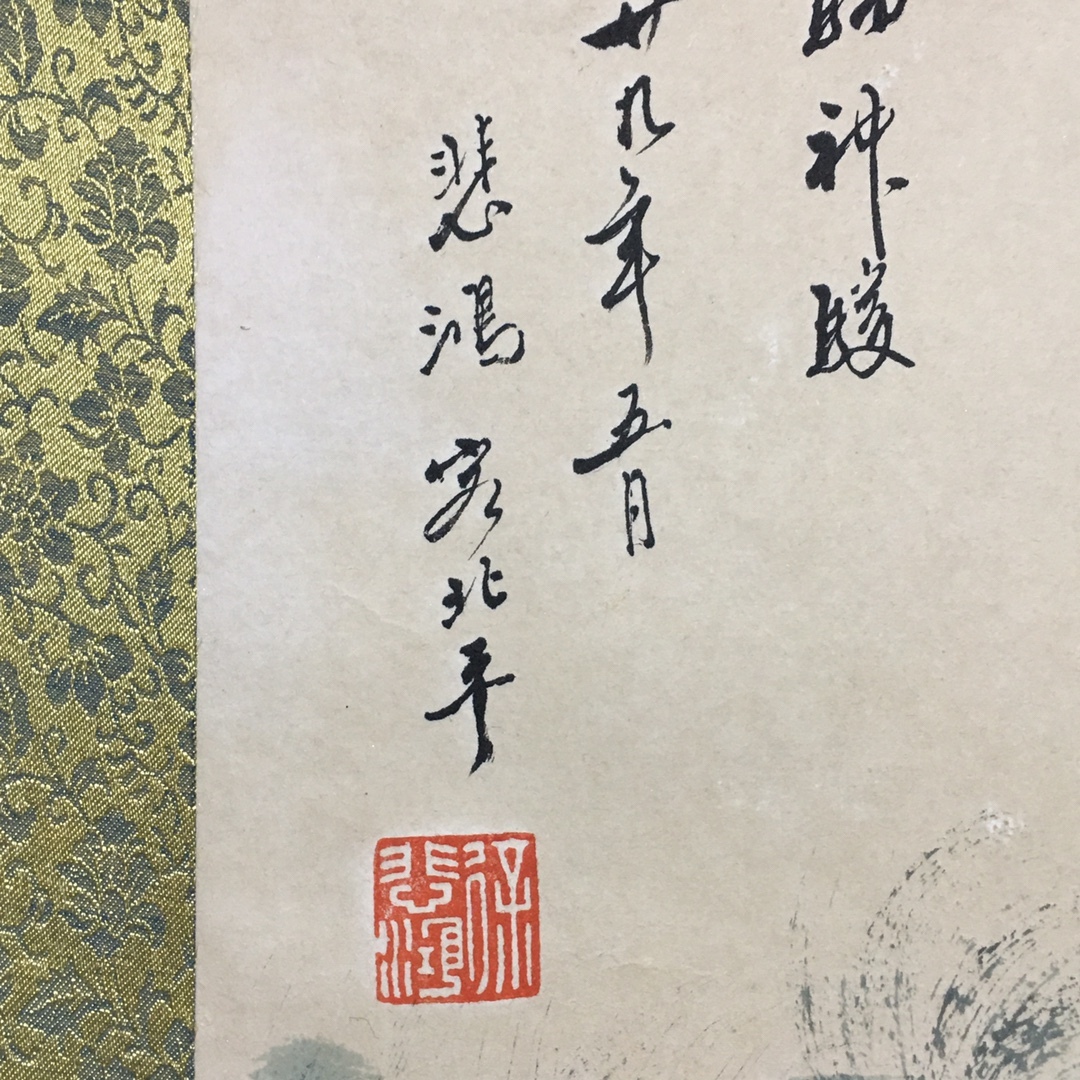 神駿
廿九年五月
悲鴻客北平
徐悲鴻